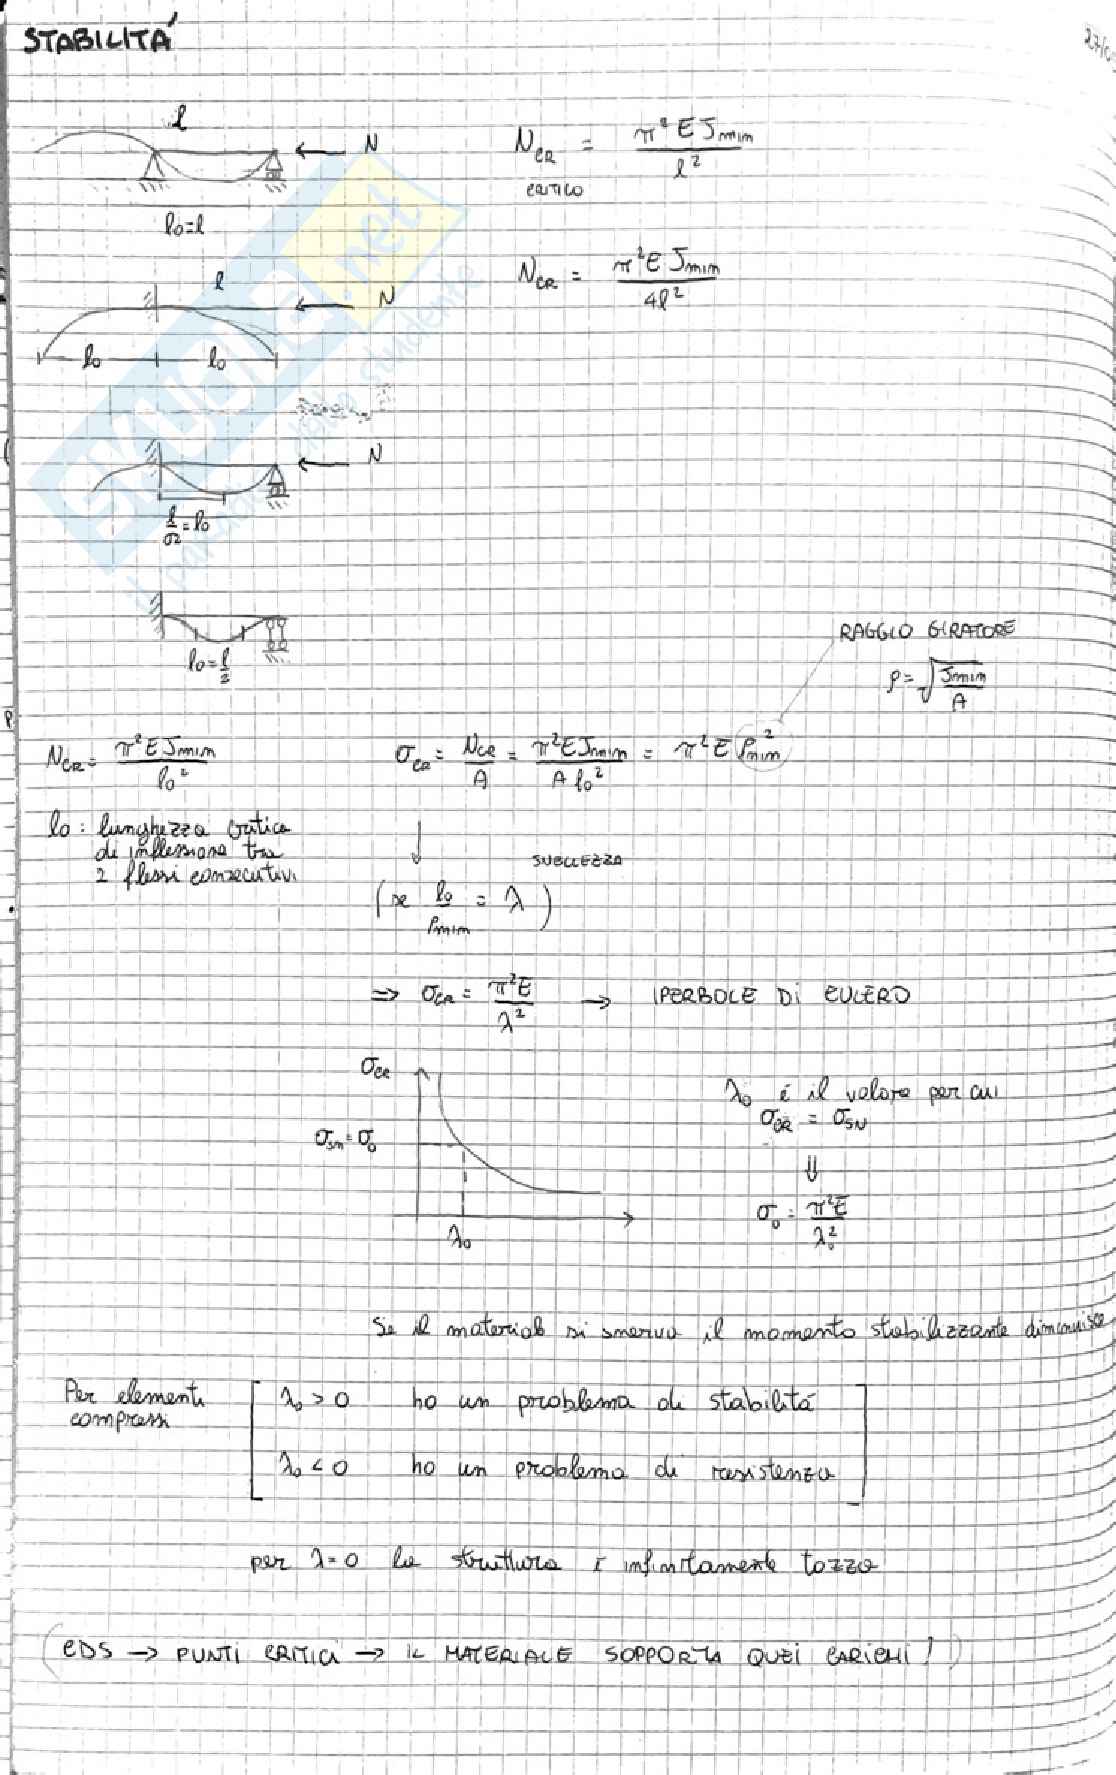 STABILITÁ
27/0
l
N
N_CR = π² E J_min / l²
CRITICO
l₀=l
N_CR = π² E J_min / 4l²
l
N
l₀ l₀
N
l/√2 = l₀
l₀ = l/2
RAGGIO GIRATORE
ρ = √(J_min / A)
N_CR = π² E J_min / l₀²
σ_CR = N_CR / A = π² E J_min / A l₀² = π² E ρ²_min
l₀ : lunghezza critica
di inflessione tra
2 flessi consecutivi
SNELLEZZA
(se l₀ / ρ_min = λ)
⇒ σ_CR = π² E / λ² → IPERBOLE DI EULERO
σ_CR
λ₀ é il valore per cui
σ_CR = σ_SN
σ_sn = σ₀
⇓
σ₀ = π² E / λ₀²
λ₀
Se il material si snerva il momento stabilizzante diminuisce
Per elementi
compressi
λ₀ > 0 ho un problema di stabilitá
λ₀ < 0 ho un problema di resistenza
per λ = 0 la struttura é infinitamente tozza
(CDS → PUNTI CRITICI → IL MATERIALE SOPPORTA QUEI CARICHI!)
SKUOLA.net